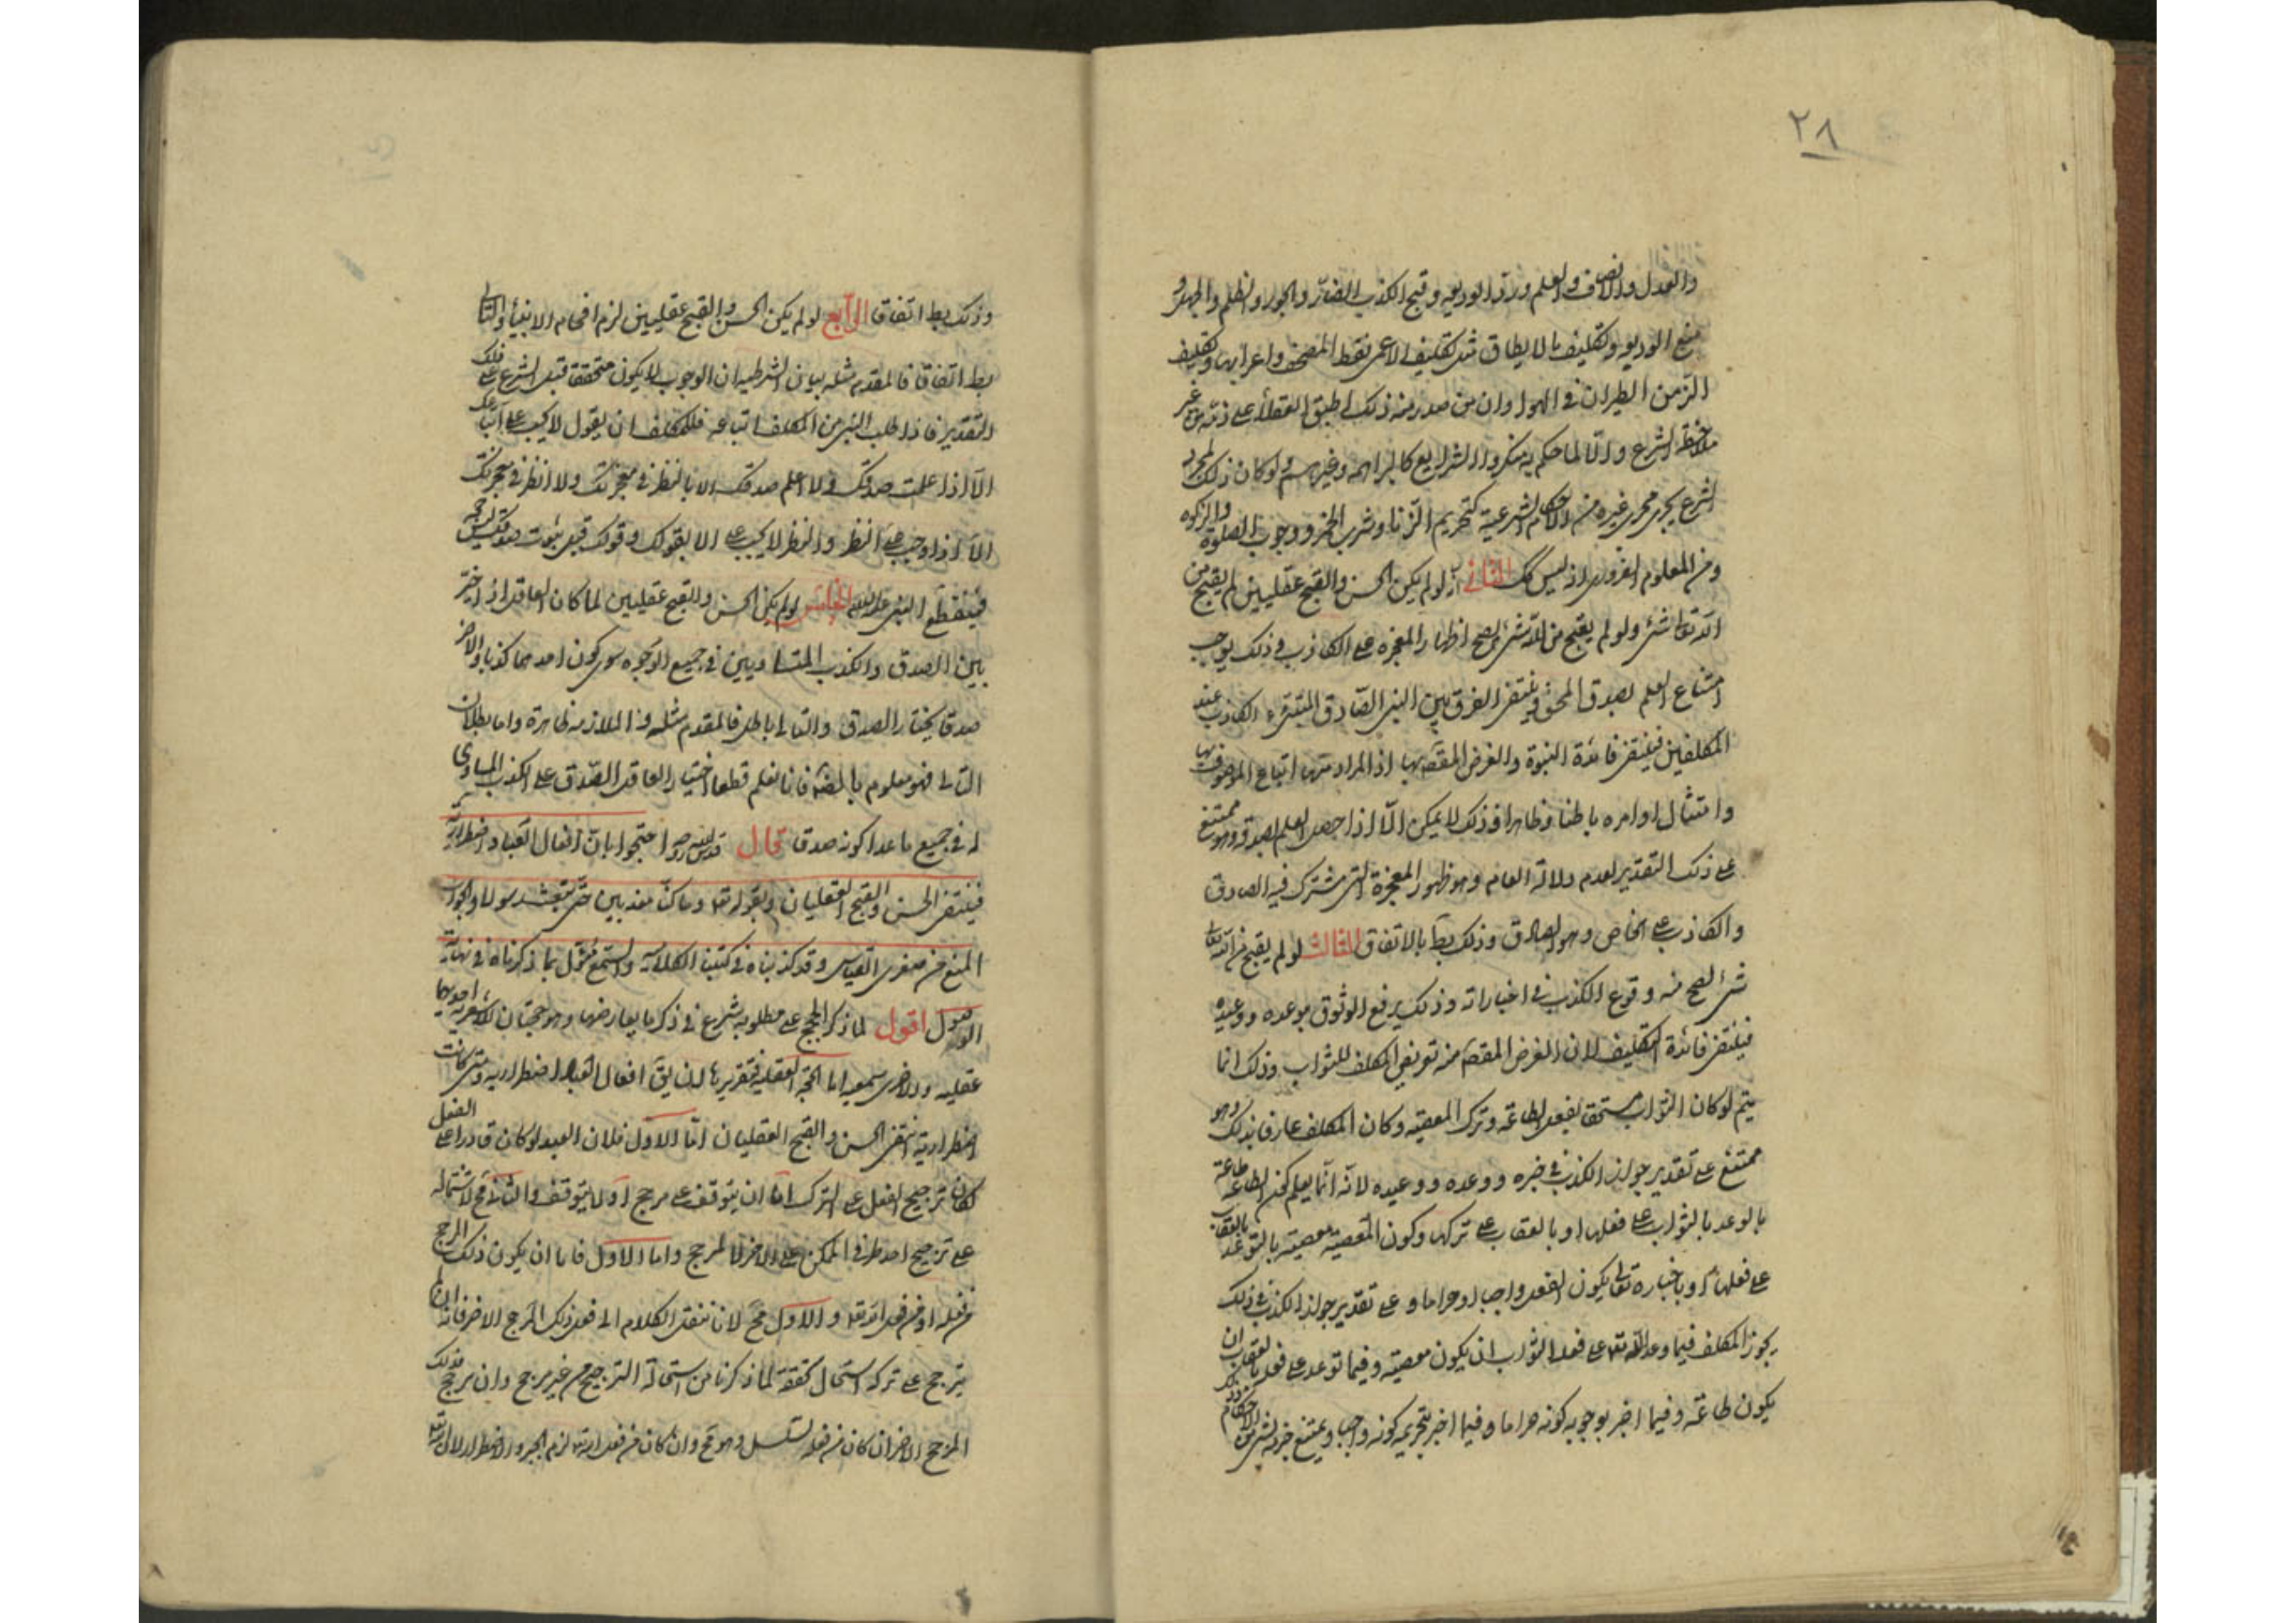 ٢٨
والعدل والانصاف والعلم ورد الوديعه وقبح الكذب الضار والجور والظلم والجهل و
منع الوديعه وتكليف ما لا يطاق مثل تكليف الاعمى نقط المصحف واعرابه وتكليف
الزمن الطيران فى الهوا وان من صدر منه ذلك اطبق العقلأ على ذمه من غير
ملاحظة الشرع والا لما حكم به منكروا الشرايع كالبراهمه وغيرهم ولو كان ذلك لمجرد
الشرع يجرى مجرى غيره من الاحكام الشرعية كتحريم الزنا وشرب الخمر ووجوب الصلوة والزكوه
ومن المعلوم الضرورى انه ليس كك الثانى لو لم يكن الحسن والقبح عقليين لم يقبح من
الله تعالى شئ ولو لم يقبح من الله شئ لصح اظهار المعجزه على الكاذب وذلك يوجب
امتناع العلم بصدق المحق وينتفى الفرق بين النبى الصادق والمتنبى الكاذب عند
المكلفين فينتفى فائدة النبوة والغرض المقصد بها اذ المراد منها اتباع الموصوف بها
وامتثال اوامره باطنا وظاهرا وذلك لا يمكن الا اذا حصل العلم بصدقه وهو ممتنع
على ذلك التقدير لعدم دلالة العام وهو ظهور المعجزة التى مشترك فيه الصادق
والكاذب على الخاص وهو الصادق وذلك بط بالاتفاق الثالث لو لم يقبح من الله تعالى
شئ لصح منه وقوع الكذب فى اخباراته وذلك يرفع الوثوق بوعده ووعيده
فينتفى فائدة التكليف لان الغرض المقصد منه تعريض المكلف للثواب وذلك انما
يتم لو كان الثواب مستحقا بفعل الطاعة وترك المعصيه وكان المكلف عارفا بذلك وهو
ممتنع على تقدير جواز الكذب فى خبره ووعده ووعيده لانه انما يعلم كون الطاعة طاعة
بالوعد بالثواب على فعلها او بالعقاب على تركها وكون المعصية معصية بالتوعد بالعقاب
على فعلها او باخباره تعالى يكون الفعل واجبا او حراما وعلى تقدير جواز الكذب فى ذلك
يجوز المكلف فيما وعد الله تعه على فعله الثواب ان يكون معصية وفيما توعد على فعله بالعقاب ان
يكون طاعة وفيما اخبر بوجوبه كونه حراما وفيما اخبر بتحريمه كونه واجبا ويمتنع
وذلك بط اتفاقا الرابع لو لم يكن الحسن والقبح عقليين لزم افحام الانبيأ والتالى
بط اتفاقا فالمقدم مثله بيان الشرطيه ان الوجوب لا يكون متحققا قبل الشرع على ذلك
التقدير فاذا طلب النبى من المكلف اتباعه فللمكلف ان يقول لا يجب على اتباعك
الا اذا علمت صدقك ولا اعلم صدقك الا بالنظر فى معجزتك ولا انظر فى معجزتك
الا اذا وجب على النظر والنظر لا يجب على الا بقولك وقولك قبل ثبوت صدقك ليس حجه
فينقطع النبى الخامس لو لم يكن الحسن والقبح عقليين لما كان العاقل اذا خير
بين الصدق والكذب المتساويين فى جميع الوجوه سوى كون احدهما كذبا والاخر
صدقا يختار الصدق والتالى باطل فالمقدم مثله والملازمه ظاهرة واما بطلان
التالى فهو معلوم بالضرورة فانا نعلم قطعا اختيار العاقل الصدق على الكذب المساوى
له فى جميع ما عدا كونه صدقا قال قدس الله روحه احتجوا بان افعال العباد اضطرارية
فينتفى الحسن والقبح العقليان وبقوله تعه وما كنا معذبين حتى نبعث رسولا والجواب
المنع من صغرى القياس وقد كذبناه فى كتبنا الكلامية والسمع متأول بما ذكرناه فى نهاية
الوصول اقول لما ذكر الحجج على مطلوبه شرع فى ذكر ما يعارضها وهو حجتان للاشعرية احديهما
عقليه والاخرى سمعيه اما الحجة العقليه فتقريرها ان يق افعال العباد اضطراريه ومتى كانت
اضطرارية انتفى الحسن والقبح العقليان اما الاول فلان العبد لو كان قادرا على الفعل
لكان ترجيح الفعل على الترك اما ان يتوقف على مرجح او لا يتوقف والثانى مح لاشتماله
على ترجيح احد طرفى الممكن على الاخر لا لمرجح واما الاول فاما ان يكون ذلك المرجح
من فعله او من فعل الله تعه والاول مح لانا ننقل الكلام الى فعل ذلك المرجح الاخر فانه ان لم
يترجح على تركه استحال تحققه لما ذكرنا من استحالة الترجيح من غير مرجح وان ترجح فذلك
المرجح الاخر ان كان من فعله تسلسل وهو مح وان كان من فعل الله تعه لزم الجبر والاضطرار لان